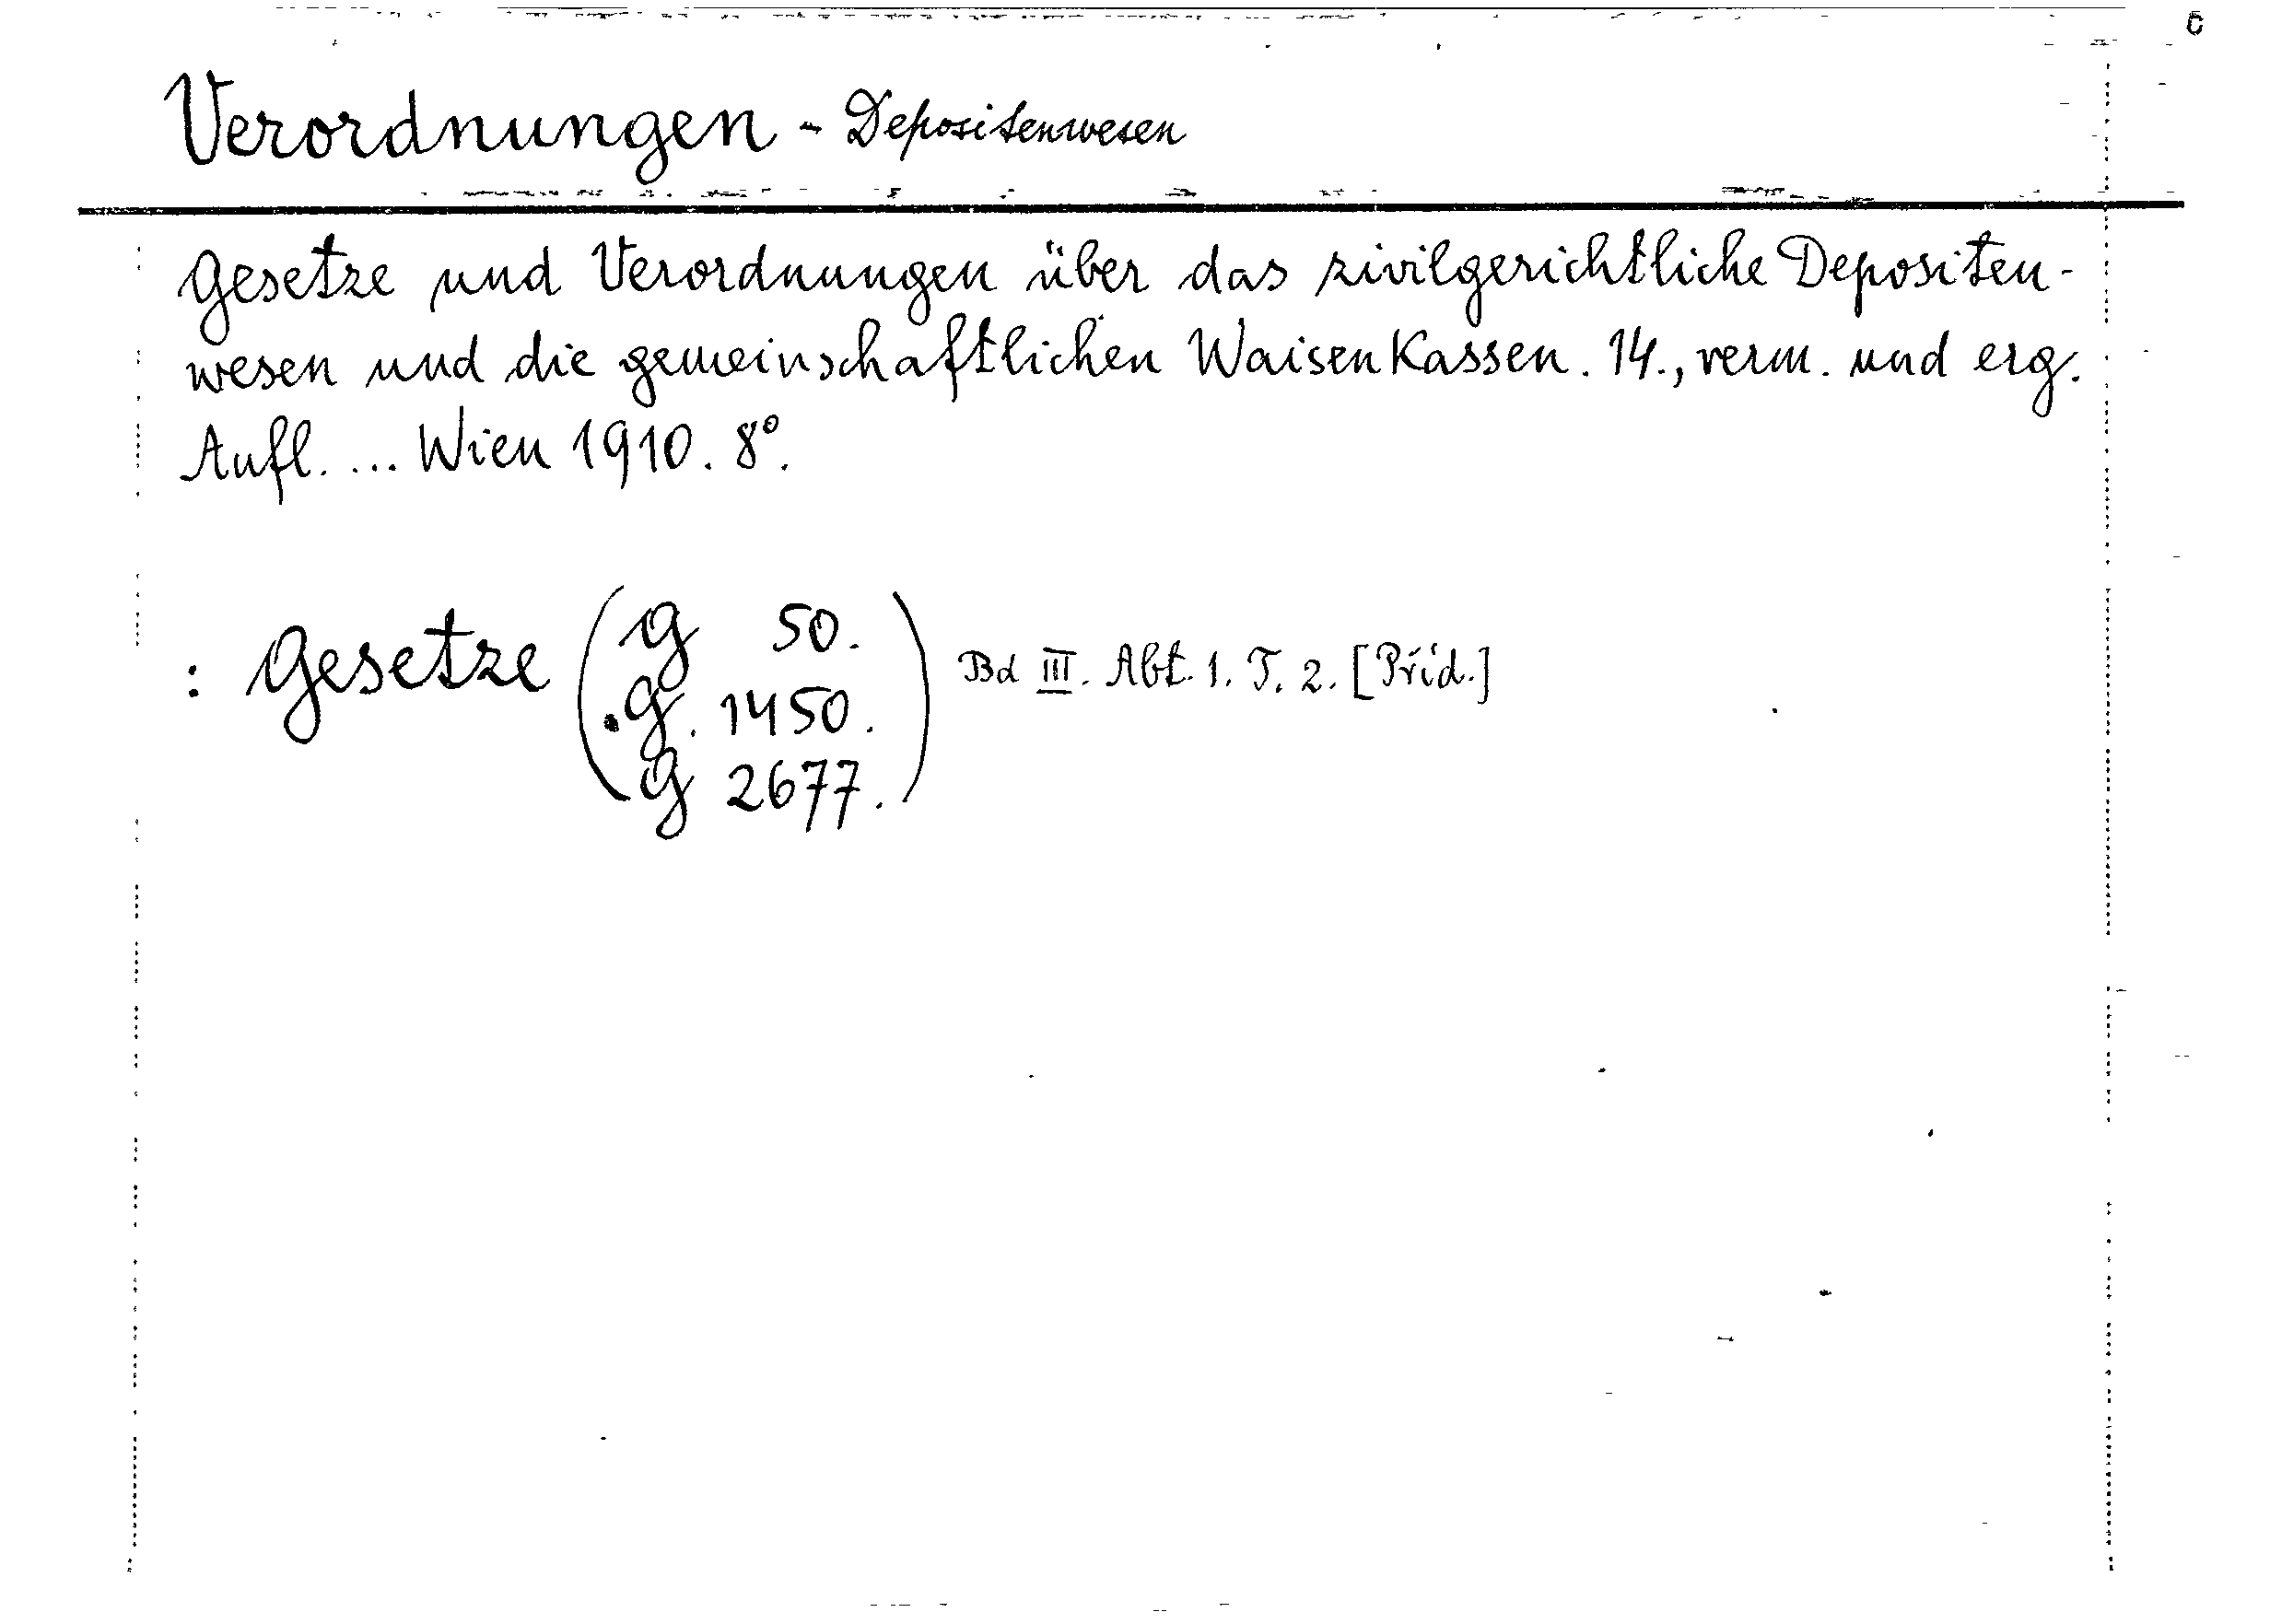 Verordnungen - Depositenwesen
Gesetze und Verordnungen über das zivilgerichtliche Depositen-
wesen und die gemeinschaftlichen Waisenkassen. 14., verm. und erg.
Aufl. ... Wien 1910. 8°.
: Gesetze (g 50.
.g. 1450.
g 2677.) Bd III. Abt. 1. T. 2. [Příd.]